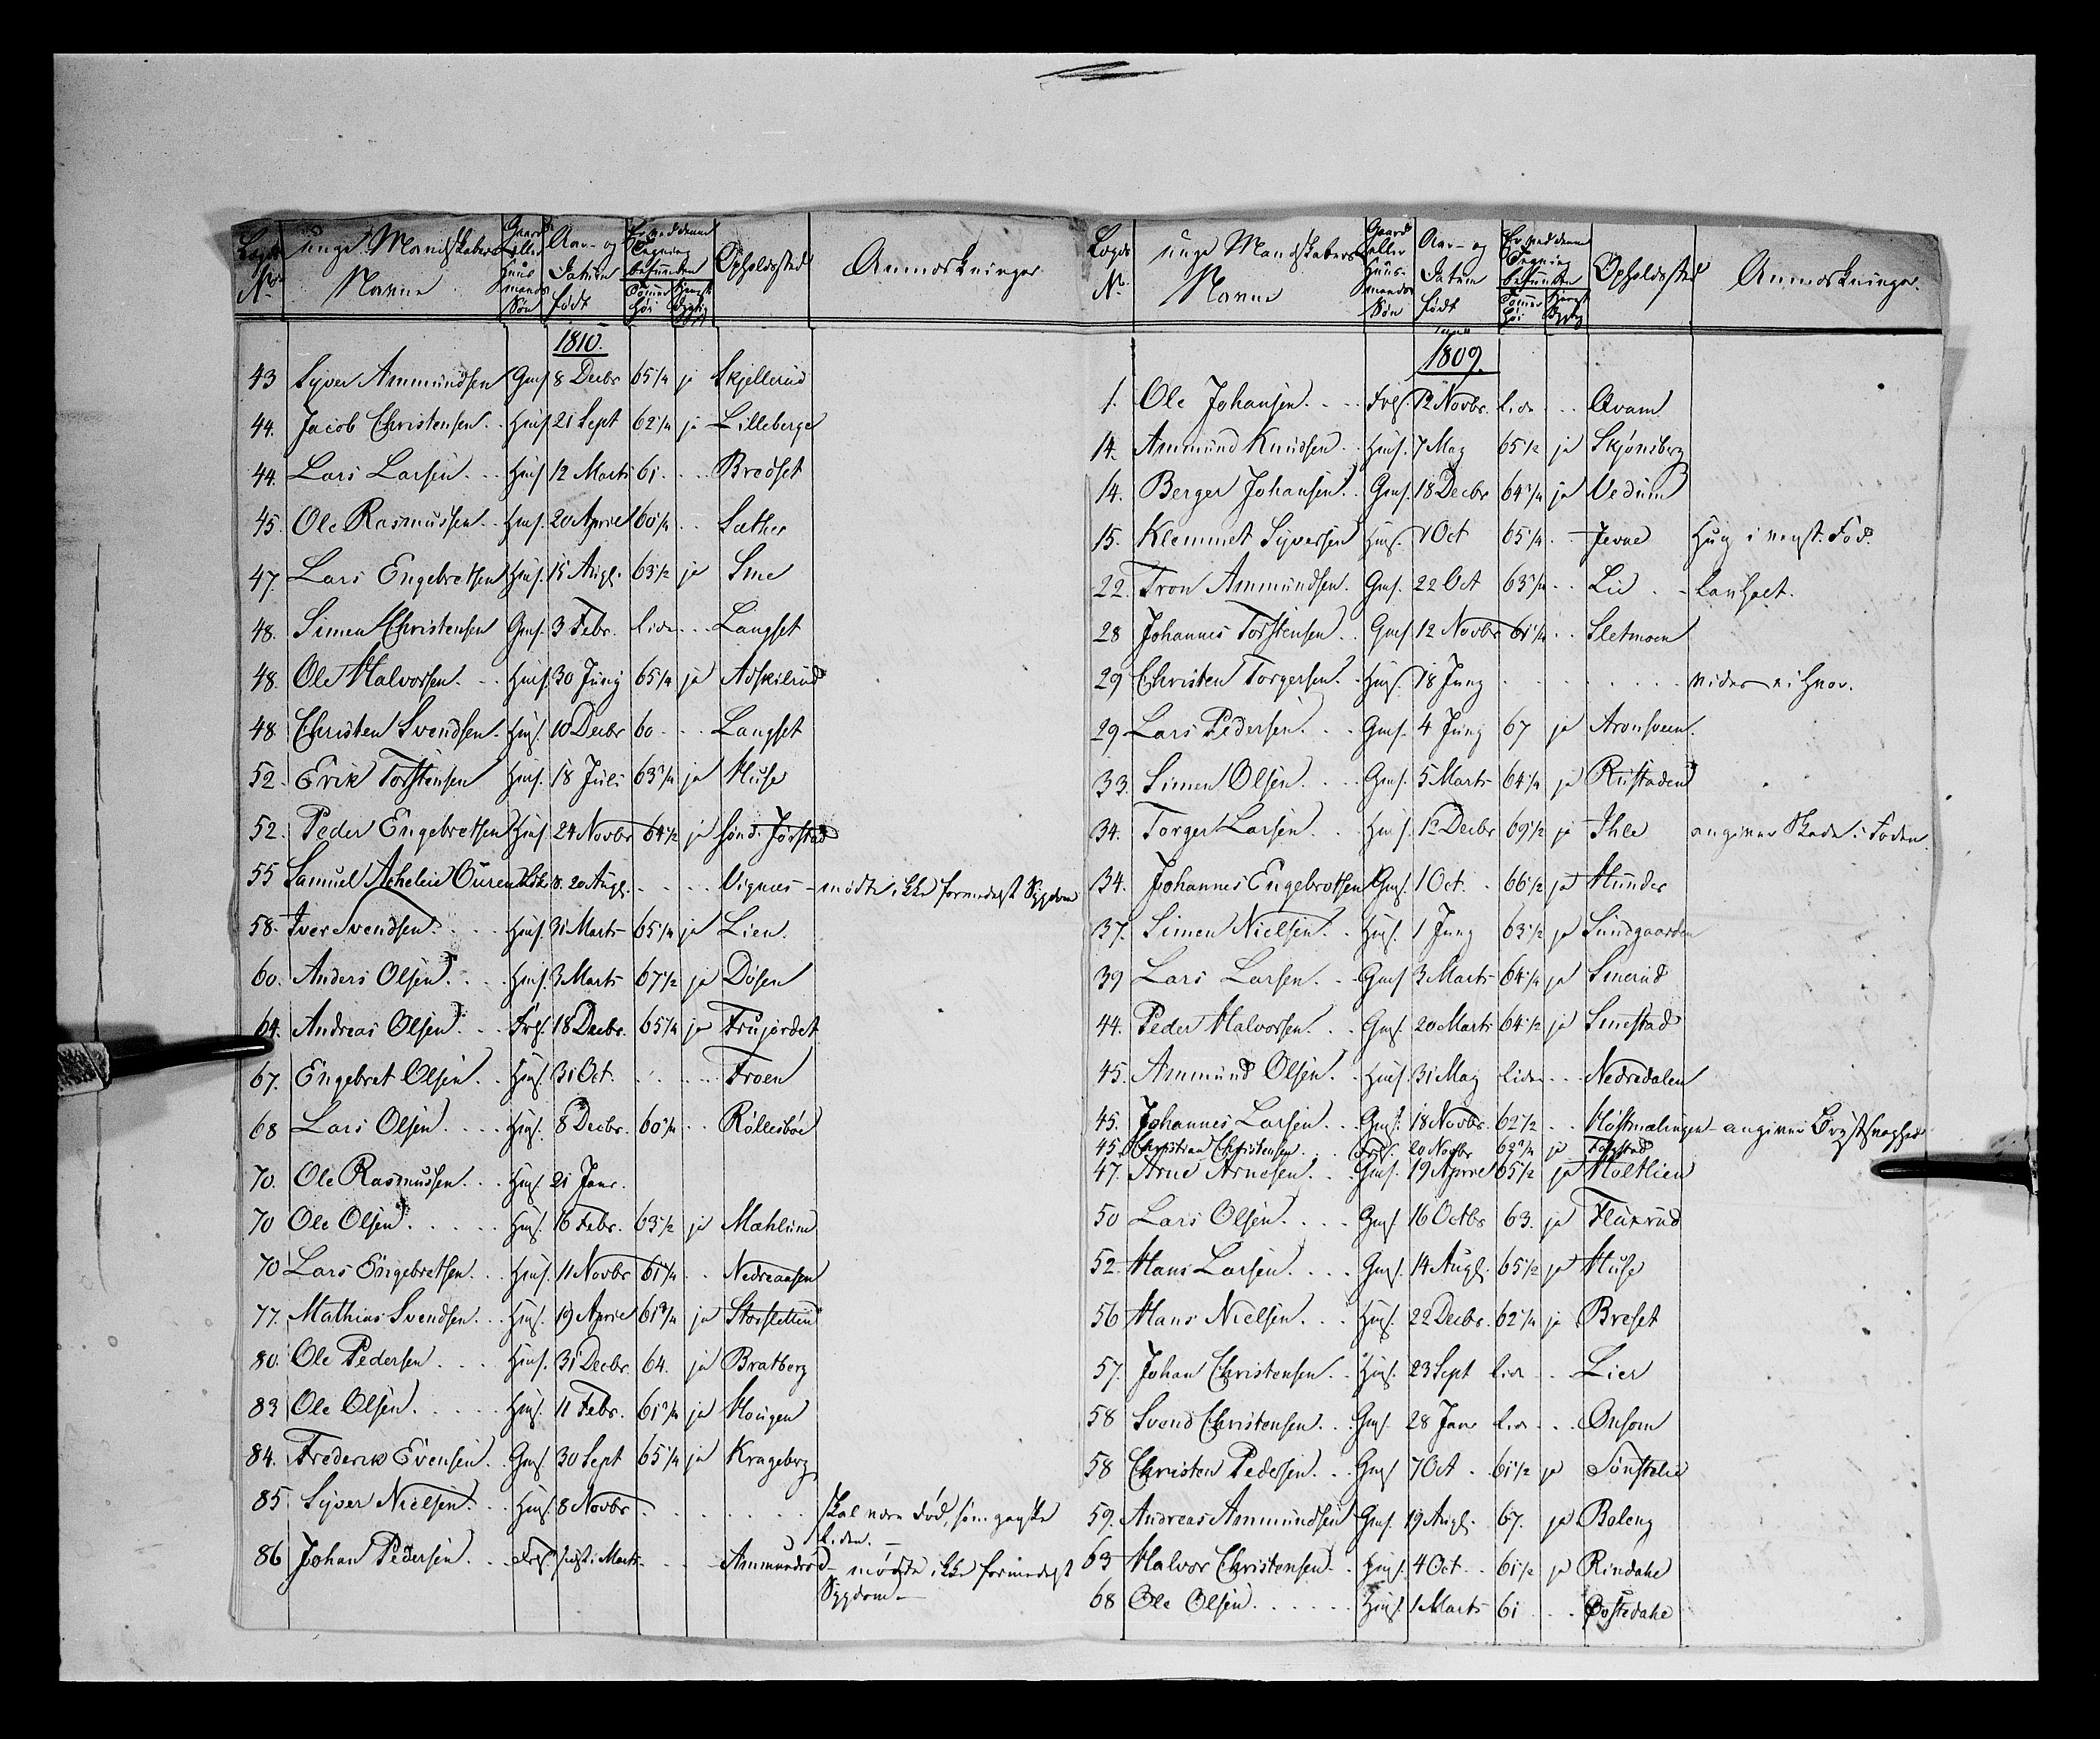 Lægds No | unge Mandskabers Navne | Gaard eller Huusmands Søn | Aar- og Datum født | Er ved denne Tegning befunden Tommer høi | Tjenstdygtig | Opholdssted | Anmærkninger
1810.
43 Syver Ammundsen Gms 8 Decbr 65 1/4 ja Skjellerud
44. Jacob Christensen Hms 21 Sept 62 1/4 ja Lilleberge
44. Lars Larsen Hms 12 Marts 61 Bredset
45. Ole Rasmussen Hms. 20 April 60 1/4 Sæther
47. Lars Engebretsen Hms. 15 Augs. 63 1/2 ja Sme
48. Simen Christensen Gms. 3 Febr. liden Langset
48. Ole Halvorsen Hms. 30 Juny 65 1/4 ja Adskilrud
48 Christen Svendsen Hms. 10 Decbr 60 Langset
52. Erik Torstensen Hms. 18 Juli 63 3/4 ja Huse
52. Peder Engebretsen Hms 24 Novbr 64 1/2 ja Sønd. Jørstad
55 Samuel Acheleie Ouren 8. 20 Augs. Vignæs - mødte ikke formedelst Sygdom
58. Iver Svendsen Hms. 31 Marts 65 1/4 ja Lien.
60. Anders Olsen Hms. 3 Marts 67 1/2 ja Døsen
64. Andreas Olsen Frs. 18 Decbr. 65 1/4 ja Frujordet
67. Engebret Olsen Hms. 31 Oct. Froen
68 Lars Olsen Hms. 8 Decbr. 60 1/4 Røllesbøe
70. Ole Rasmussen Hms. 21 Janr.
70 Ole Olsen Hms. 16 Febr. 63 1/2 ja Mæhlum
70 Lars Engebretsen Hms. 11 Novbr 61 1/4 Nedreaasen
77. Mathias Svendsen Hms. 19 April 61 3/4 ja Storsletten
80. Ole Pedersen Hms. 31 Decbr. 64. ja Bratberg
83 Ole Olsen Hms. 11 Febr. 61 3/4 ja Hougen
84. Frederik Evensen Gms. 30 Sept 65 1/4 ja Krageberg
85 Syver Nielsen Hms. 8 Novbr skal være død, som ganske
liden.
86 Johan Pedersen Frs. sidst i Marts Ammundrød - mødte ikke formedelst
Sygdom
Lægds No | unge Mandskabers Navne | Gaard eller Huusmands Søn | Aar- og Datum født | Er ved denne Tegning befunden Tommer høi | Tjenst Dygtig | Opholdssted | Anmærkninger.
1809.
1. Ole Johansen Frs. 12 Novbr. liden Qvam
14. Ammund Knudsen Hms. 7 May 65 1/2 ja Skjønsberg
14. Berger Johansen Gms. 18 Decbr 64 3/4 ja Vedum
15. Klemmet Syversen Hms. 1 Oct 65 1/4 Jevne Hug i venst. Fod.
22. Tron Ammundsen Gms. 22 Oct 63 3/4 Lid - lanhalt.
28 Johannes Torstensen Gms. 12 Novbr 61 1/4 Sletmoen
29 Christen Torgersen Hms. 18 Juny
29 Lars Pedersen Gms. 4 Juny 67 ja Aronsveen.
33. Simen Olsen Gms. 5 Marts 64 1/4 ja Rustaden
34. Torger Larsen Hms. 12 Decbr 69 1/2 ja Ihle angiver Skade i Foden.
34. Johannes Engebretsen Gms. 1 Oct. 66 1/2 ja Hunder
37. Simen Nielsen Hms. 1 Juny 63 1/2 ja Sundgaarden
39 Lars Larsen Gms 3 Marts 64 1/4 ja Smerud
44. Peder Halvorsen Gms. 20 Marts 64 1/2 ja Smestad
45. Ammund Olsen Hms. 31 May liden Nedredalen
45. Johannes Larsen Gms. 18 Novbr. 62 1/2 Høstmælingen - angiver Brystsvaghed
45 Christian Christensen Frs. 20 Novbr 62 3/4 ja
47. Arne Arnesen Gms. 19 April 65 1/2 ja Holtlien
50 Lars Olsen Gms. 16 Octbr 63. ja Fluxrud
52. Hans Larsen Gms. 14 Augs. 65 1/2 ja Huse
56 Hans Nielsen Hms. 22 Decbr. 62 1/4 ja Breset
57. Johan Christensen Hms. 23 Sept liden Lier
58 Svend Christensen Gms. 28 Janr liden Onsom
58 Christen Pedersen Gms 7 Oct 61 1/2 ja Sønstelie
59. Andreas Ammundsen Gms. 19 Augs. 67. ja Boleng
63 Halvor Christensen Hms. 4 Oct. 61 1/2 ja Rindahe
68 Ole Olsen Hms. 1 Marts 61 Østedahe